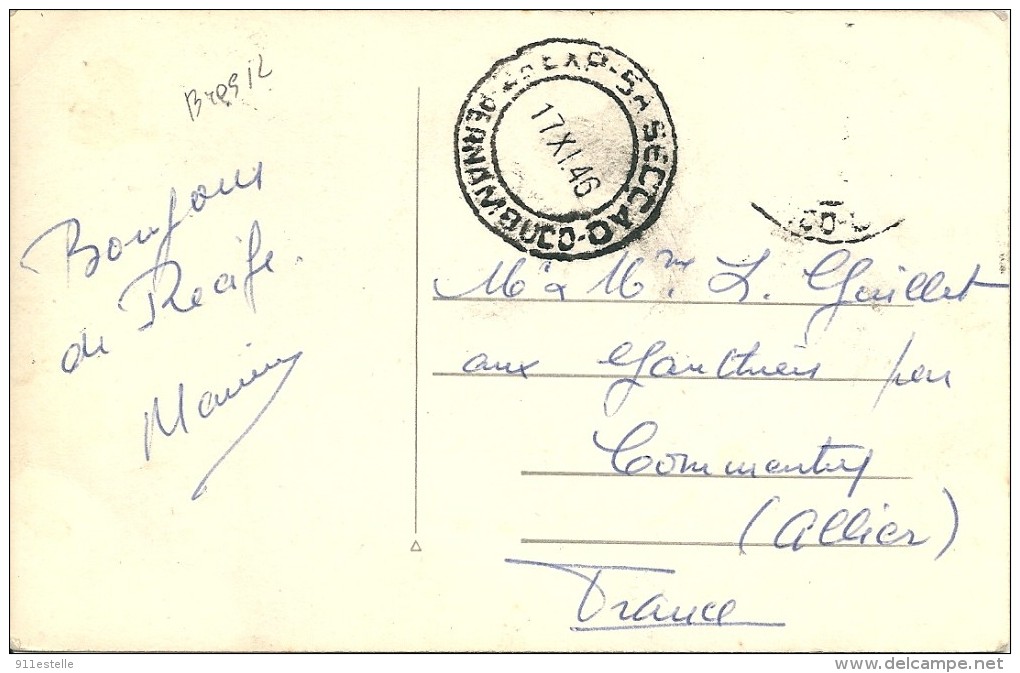 Bresil
Bonjour
de Recife.
EXP-5A SECCAO
PERNAMBUCO-
17.XI.46
CO-
Mr & Mme L. Guillet
aux Gauthiers par
Commentry
(Allier)
France
911estelle
www.delcampe.net